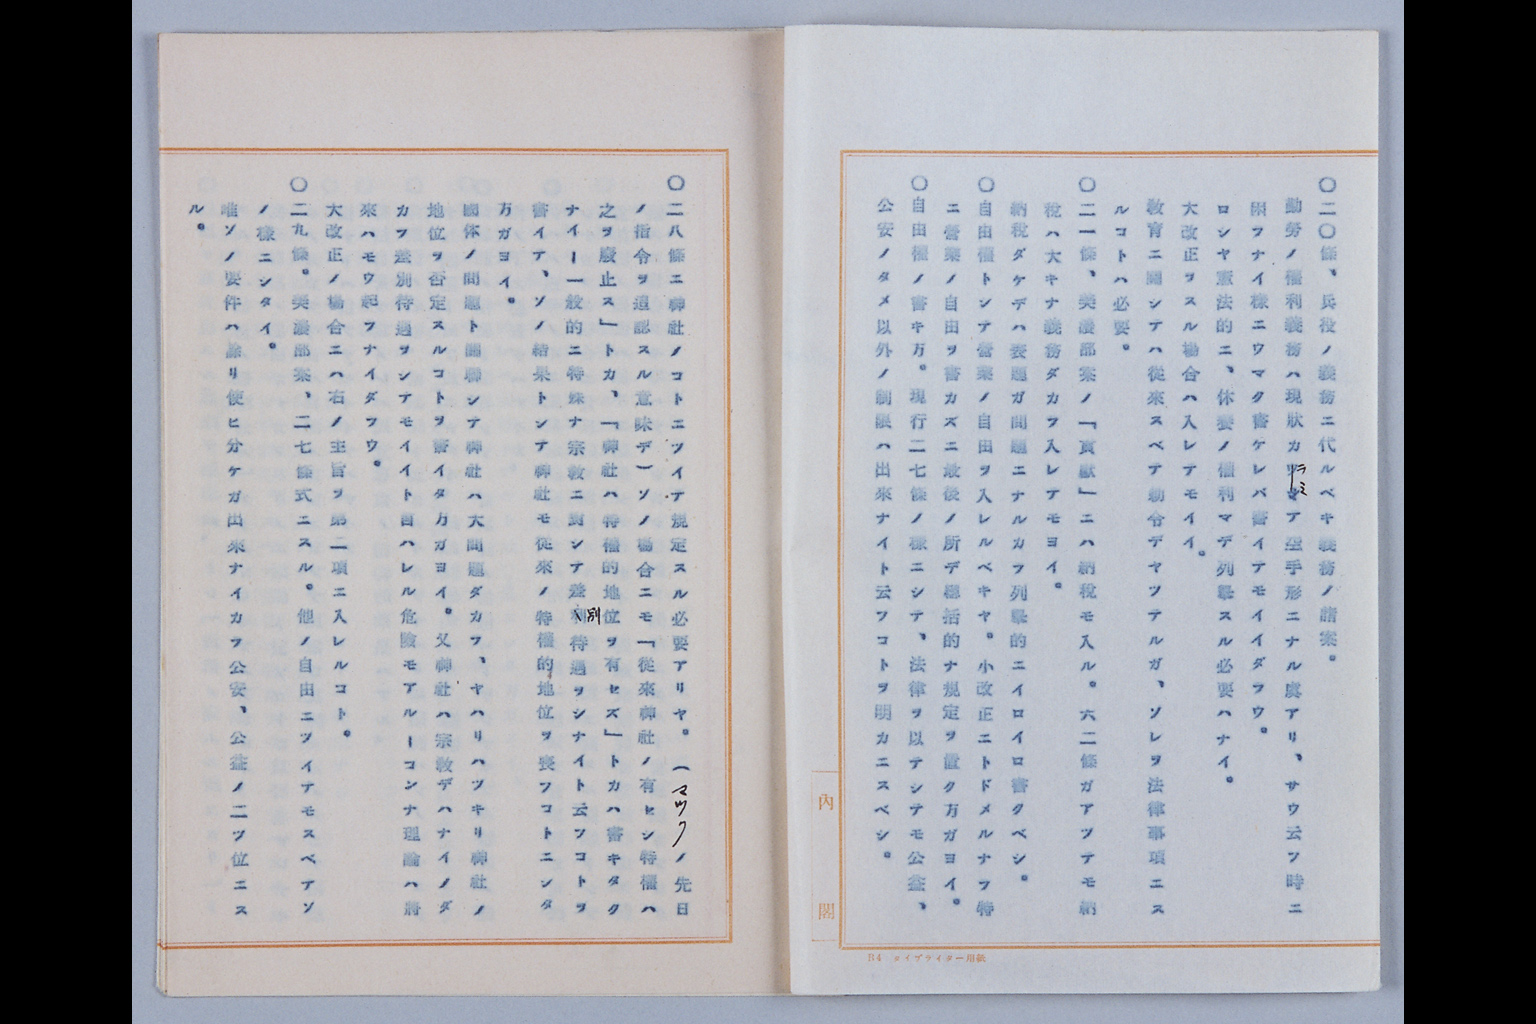 〇二〇條、兵役ノ義務ニ代ルベキ義務ノ諸案。
勤勞ノ權利義務ハ現狀カラミテ空手形ニナル虞アリ、サウ云フ時ニ
困ラナイ樣ニウマク書ケレバ書イテモイイダラウ。
ロシヤ憲法的ニ、休養ノ權利マデ列擧スル必要ハナイ。
大改正ヲスル場合ハ入レテモイイ。
教育ニ關シテハ從來スベテ勅令デヤツテルガ、ソレヲ法律事項ニス
ルコトハ必要。
〇二一條、美濃部案ノ「貢獻」ニハ納稅モ入ル。六二條ガアツテモ納
稅ハ大キナ義務ダカラ入レテモヨイ。
納稅ダケデハ表題ガ問題ニナルカラ列擧的ニイロイロ書クベシ。
〇自由權トシテ營業ノ自由ヲ入レルベキヤ。小改正ニトドメルナラ特
ニ營業ノ自由ヲ書カズニ最後ノ所デ槪括的ナ規定ヲ置ク方ガヨイ。
〇自由權ノ書キ方。現行二七條ノ樣ニシテ、法律ヲ以テシテモ公益、
公安ノタメ以外ノ制限ハ出來ナイト云フコトヲ明カニスベシ。
內閣
B4 タイプライター用紙
〇二八條ニ神社ノコトニツイテ規定スル必要アリヤ。(マツクノ先日
ノ指令ヲ追認スル意味デ)ソノ場合ニモ「從來神社ノ有セシ特權ハ
之ヲ廢止ス」トカ、「神社ハ特權的地位ヲ有セズ」トカハ書キタク
ナイ―一般的ニ特殊ナ宗教ニ對シテ差別待遇ヲシナイト云フコトヲ
書イテ、ソノ結果トシテ神社モ從來ノ特權的地位ヲ喪フコトニシタ
方ガヨイ。
國体ノ問題ト關聯シテ神社ハ大問題ダカラ、ヤハリハツキリ神社ノ
地位ヲ否定スルコトヲ書イタ方ガヨイ。又神社ハ宗教デハナイノダ
カラ差別待遇ヲシテモイイト自ハレル危險モアル―コンナ理論ハ將
來ハモウ起ラナイダラウ。
大改正ノ場合ニハ右ノ主旨ヲ第二項ニ入レルコト。
〇二九條。美濃部案、二七條式ニスル。他ノ自由ニツイテモスベテソ
ノ樣ニシタイ。
唯ソノ要件ハ餘リ使ヒ分ケガ出來ナイカラ公安、公益ノ二ツ位ニス
ル。